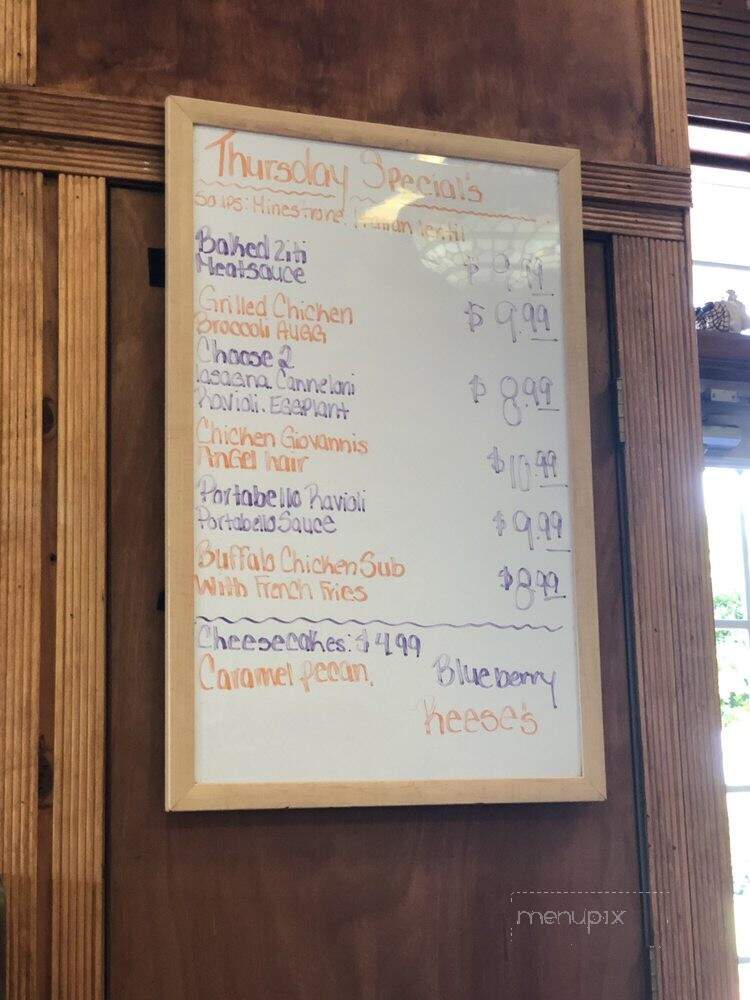 Thursday Special's
Soups: Minestrone, Italian Lentil
Baked Ziti
Meatsauce $ 9.99
Grilled Chicken $ 9.99
Broccoli AU&G
Choose 2
Lasagna Canneloni $ 8.99
Ravioli. EggPlant
Chicken Giovannis
Angel hair $ 10.99
Portabello Ravioli
Portabello Sauce $ 9.99
Buffalo Chicken Sub
With French Fries $ 8.99
Cheesecakes: $ 4.99
Caramel pecan, Blueberry
Reese's
menupix